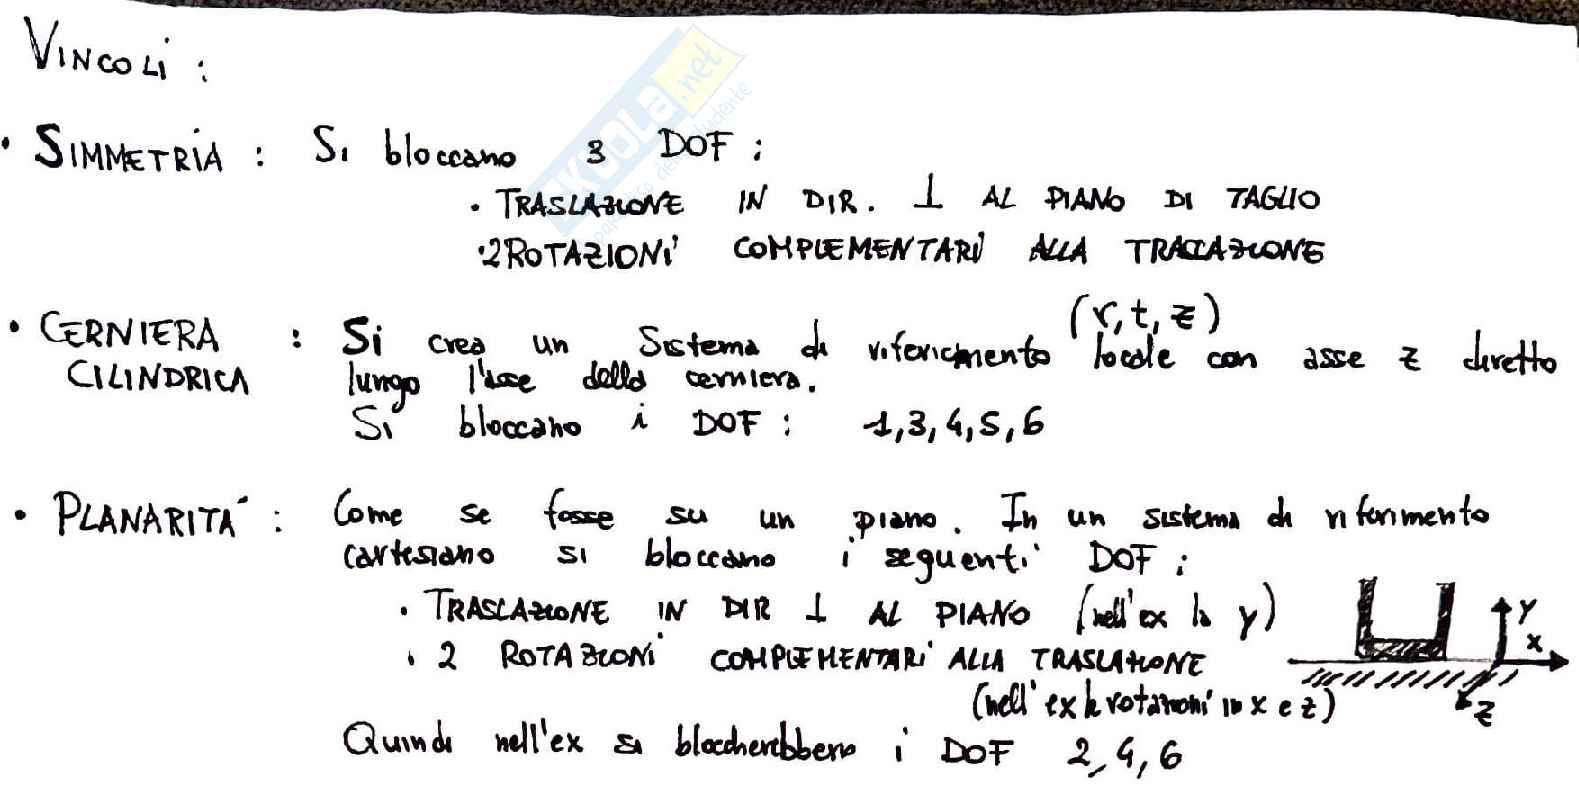 VINCOLI :
• SIMMETRIA : Si bloccano 3 DOF :
• TRASLAZIONE IN DIR. ⊥ AL PIANO DI TAGLIO
• 2 ROTAZIONI COMPLEMENTARI ALLA TRASLAZIONE
• CERNIERA CILINDRICA : Si crea un Sistema di riferimento (r, t, z) locale con asse z diretto
lungo l'asse della cerniera.
Si bloccano i DOF : 1, 3, 4, 5, 6
• PLANARITA' : Come se fosse su un piano. In un sistema di riferimento
cartesiano si bloccano i seguenti DOF :
• TRASLAZIONE IN DIR ⊥ AL PIANO (nell'ex la y)
• 2 ROTAZIONI COMPLEMENTARI ALLA TRASLAZIONE
(nell'ex le rotazioni in x e z)
Quindi nell'ex si bloccherebbero i DOF 2, 4, 6
Y
X
Z
SKUOLA.net